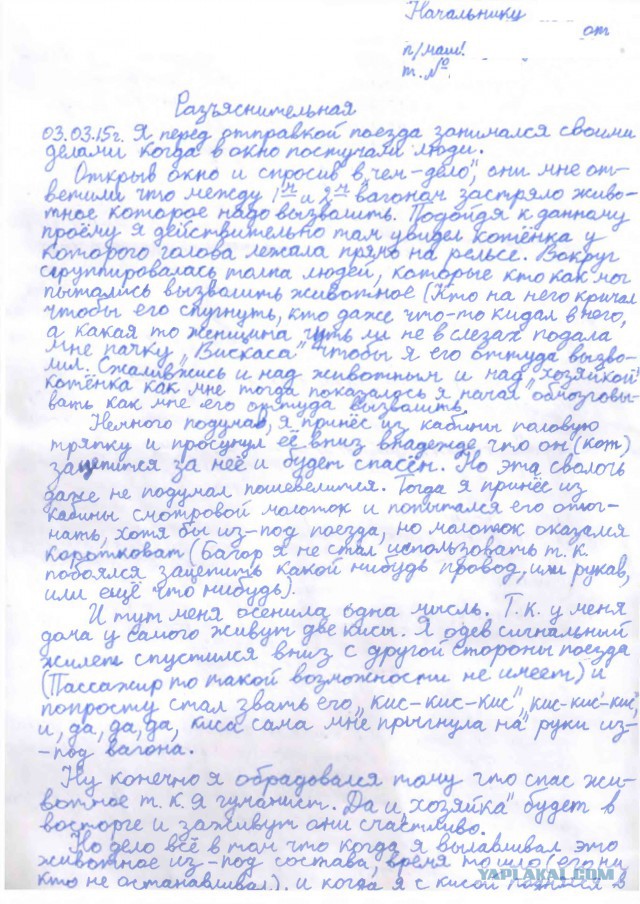 Начальнику
от
п/маш.
т. №
Разъяснительная
03.03.15г. Я перед отправкой поезда занимался своими
делами когда в окно постучали люди.
Открыв окно и спросив „в чем-дело", они мне от-
ветили что между 1м и 2м вагоном застряло живо-
тное которое надо вызволить. Подойдя к данному
проёму я действительно там увидел котёнка у
которого голова лежала прямо на рельсе. Вокруг
сгруппировалась толпа людей, которые кто как мог
пытались вызволить животное (Кто на него кричал
чтобы его спугнуть, кто даже что-то кидал в него,
а какая то женщина чуть ли не в слезах подала
мне пачку „Вискаса" чтобы я его оттуда вызво-
лил. Сжалившись и над животным и над „хозяйкой"
котёнка как мне тогда показалось я начал обмозговы-
вать как мне его оттуда вызволить.
Немного подумав, я принёс из кабины половую
тряпку и просунул её вниз внадежде что он (кот)
зацепится за неё и будет спасён. Но эта сволочь
даже не подумал пошевелится. Тогда я принёс из
кабины смотровой молоток и попытался его отог-
нать, хотя бы из-под поезда, но молоток оказался
коротковат (багор я не стал использовать т.к.
побоялся зацепить какой нибудь провод, или рукав,
или ещё что нибудь).
И тут меня осенила одна мысль. Т.к. у меня
дома у самого живут две кисы. Я одев сигнальный
жилет спустился вниз с другой стороны поезда
(Пассажир то такой возможности не имеет) и
попросту стал звать его „кис-кис-кис", кис-кис-кис,
и, да, да, да, киса сама мне прыгнула на руки из-
-под вагона.
Ну конечно я обрадовался тому что спас жи-
вотное т.к. я гуманист. Да и „хозяйка" будет в
восторге и заживут они счастливо.
Но дело всё в том что когда я вылавливал это
животное из-под состава, время то шло (его ни
кто не останавливал), и когда я с кисой поднялся в
YAPLAKAL.COM